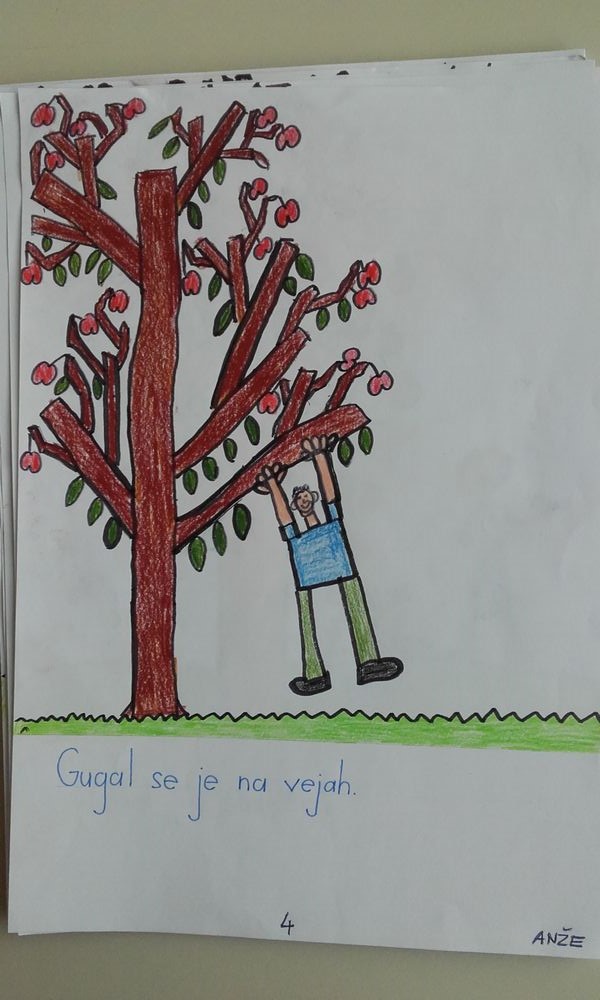 Gugal se je na vejah.
4
ANŽE